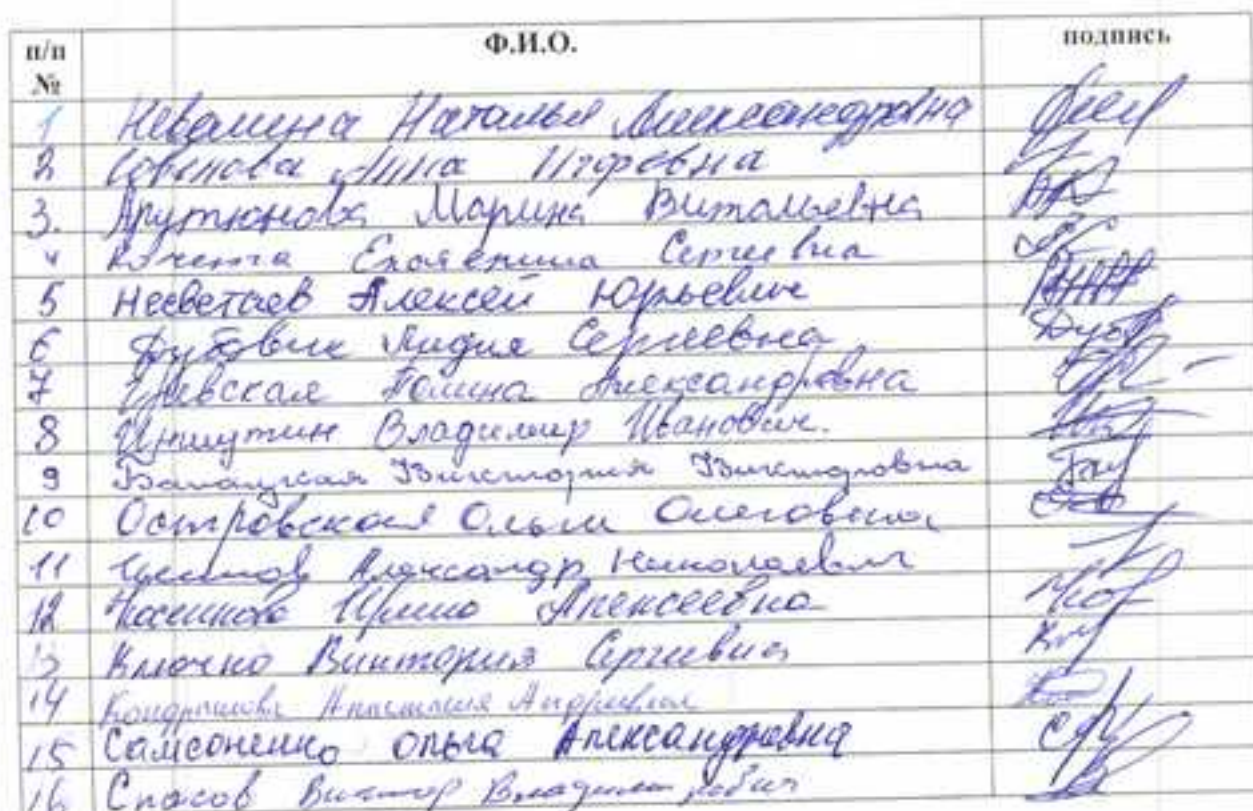 п/п № Ф.И.О. подпись
1 Наталья Александровна
2 Анна Игоревна
3. Арутюнова Марина Витальевна
4 Екатерина Сергеевна
5 Несветаев Алексей Юрьевич
6 Дубовик Лидия Сергеевна
7 Полина Александровна
8 Иншутин Владимир Иванович.
9 Виктория Викторовна
10 Островская Ольга Олеговна
11 Александр Николаевич
12 Ирина Алексеевна
13 Клочко Виктория Сергеевна
14 Анастасия Андреевна
15 Самсоненко Ольга Александровна
16 Спасов Виктор Владимирович